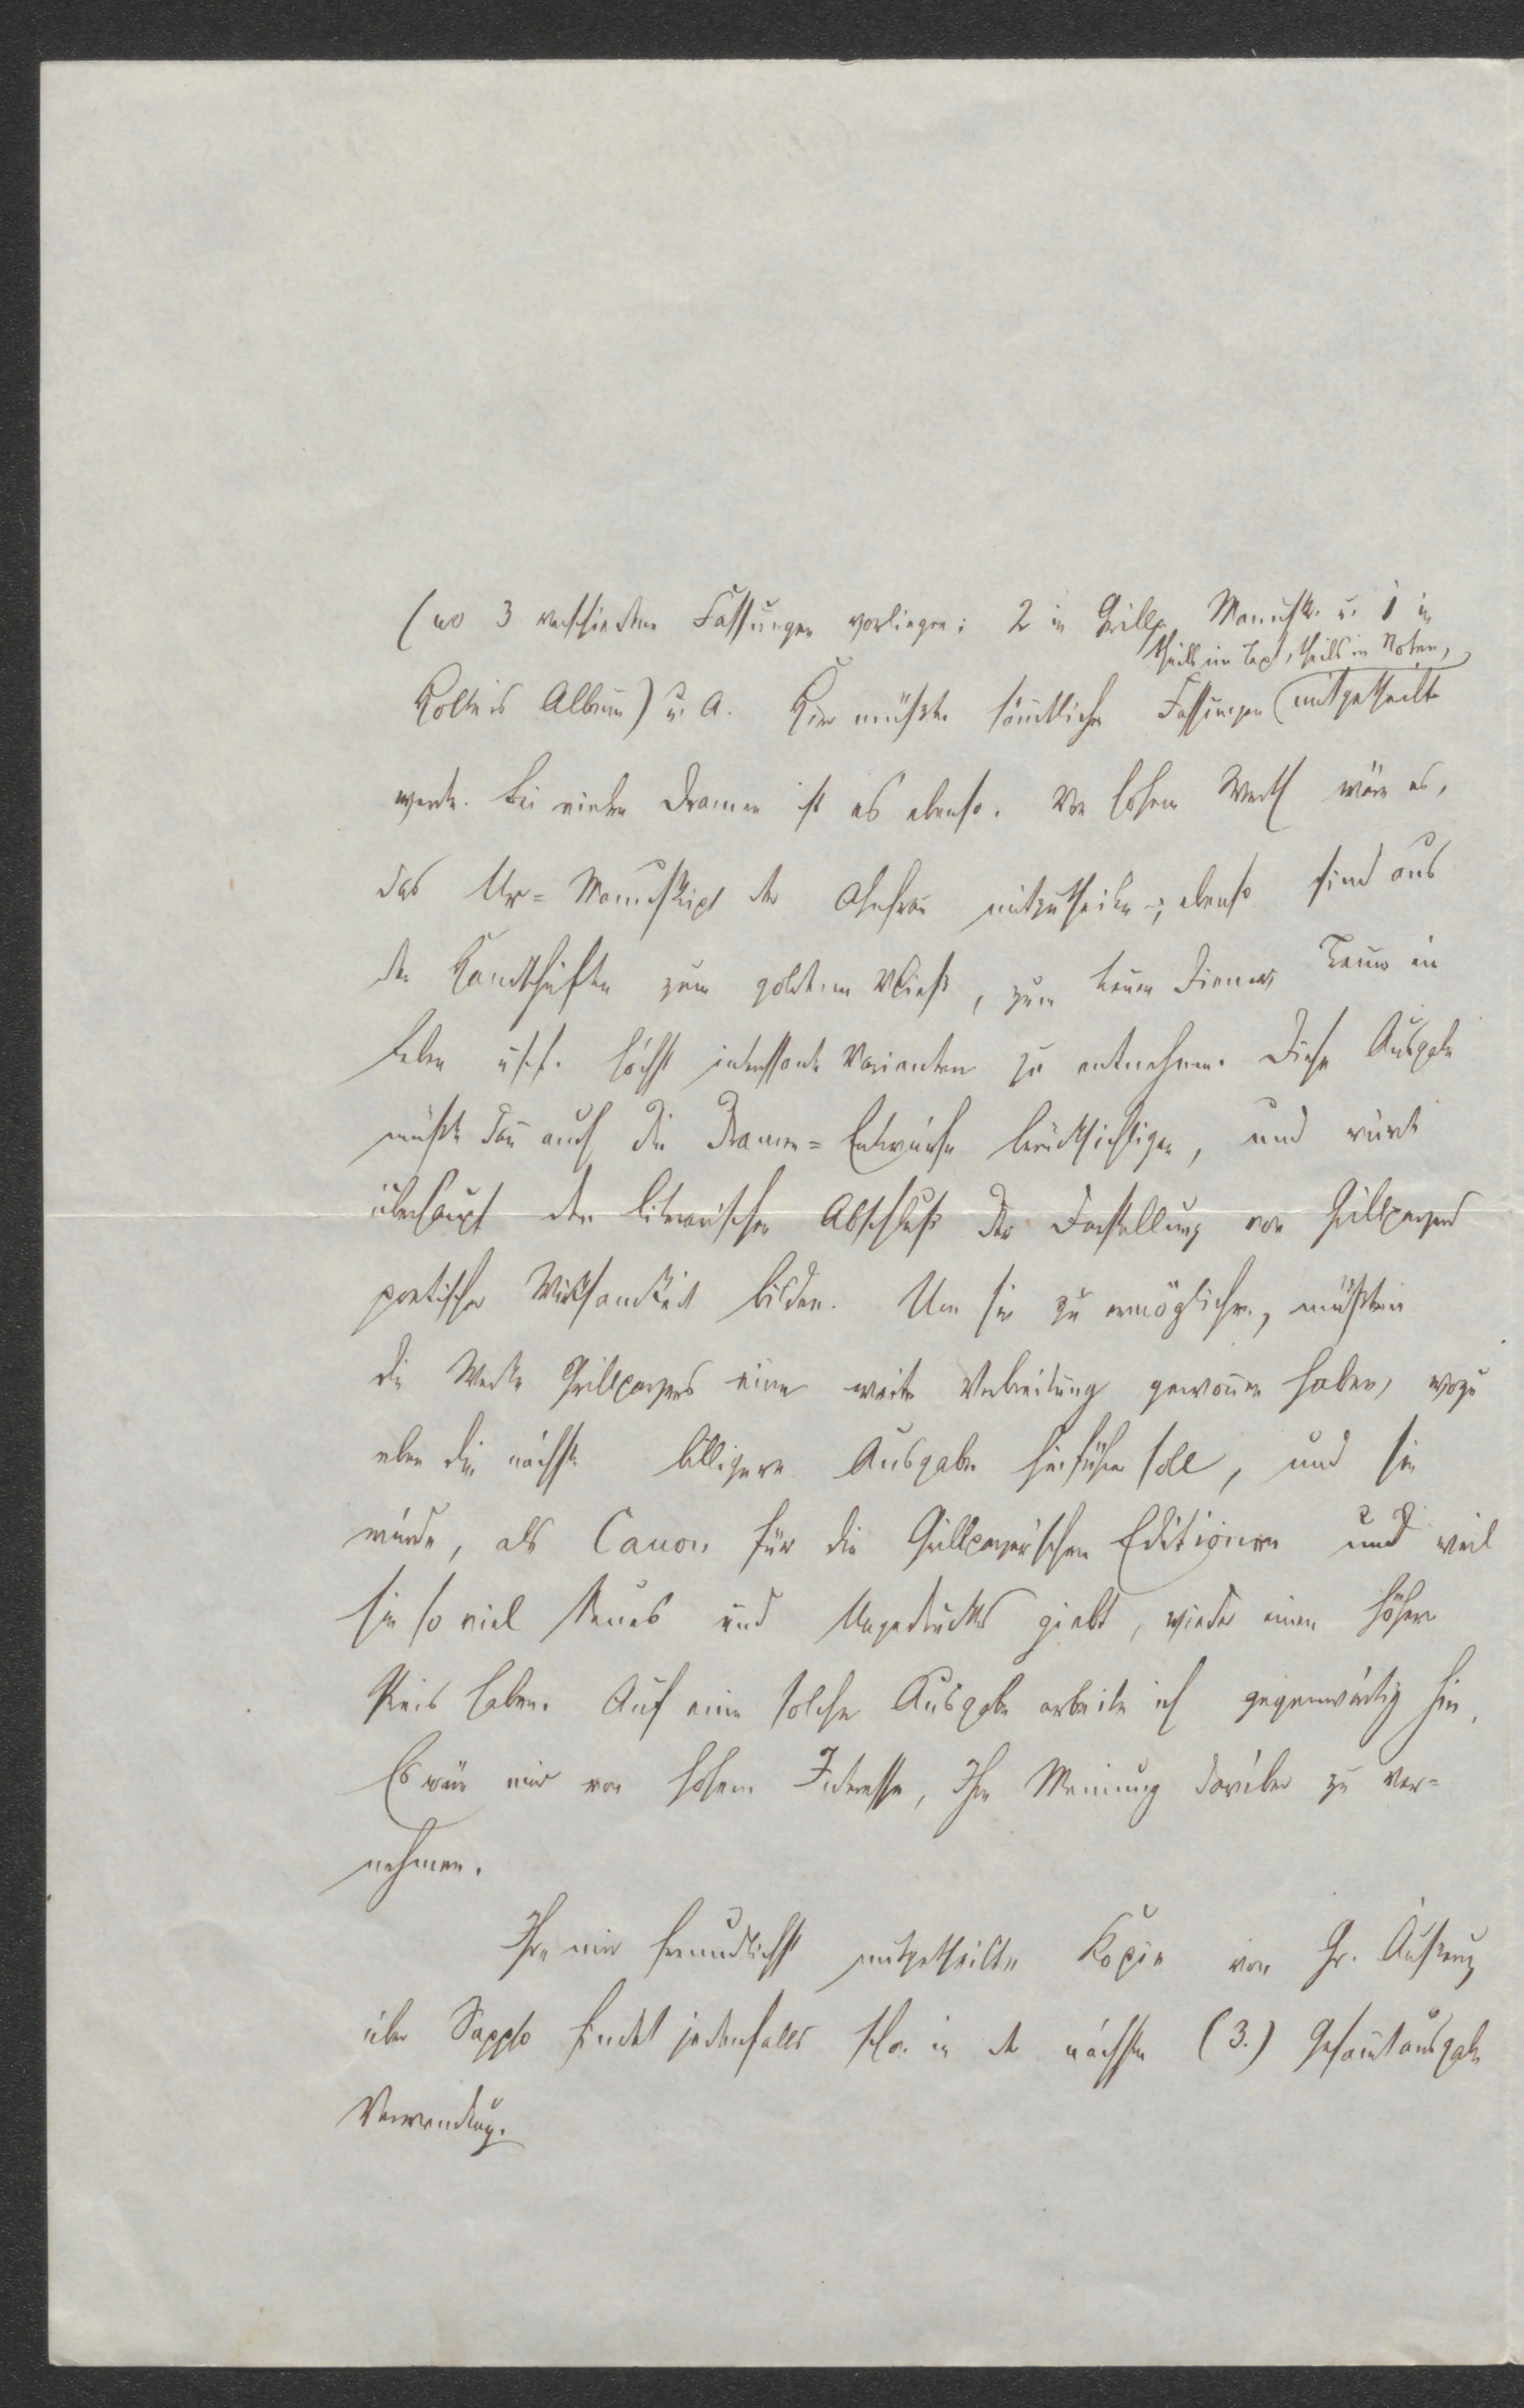 (wo 3 verschiedene Fassungen vorliegen: 2 in Grillp. Manuskr. u. 1 in
theils im Text, theils in Noten,
Holteis Album) u. A. Hier müßten sämtliche Fassungen mitgetheilt
werden. Bei vielen Dramen ist es ebenso. Von hohem Werth wäre es,
das Ur-Manuskript der Ahnfrau mitzutheilen; ebenso sind aus
den Handschriften zum goldenen Vließ, zum treuen Diener, Traum ein
Leben usf. höchst interessante Varianten zu entnehmen. Diese Ausgabe
müßte dann auch die Dramen-Entwürfe berücksichtigen, und würde
überhaupt den literarischen Abschluß der Darstellung von Grillparzers
poetischer Wirksamkeit bilden. Um sie zu ermöglichen, müßten
die Werke Grillparzers eine weite Verbreitung gewonnen haben, wozu
eben die nächste billigere Ausgabe hinführen soll, und sie
würde, als Canon für die Grillparzer'schen Editionen und weil
sie so viel Neues und Ungedrucktes giebt, wieder einen höhern
Preis haben. Auf eine solche Ausgabe arbeite ich gegenwärtig hin.
Es wäre mir von hohem Interesse, Ihre Meinung darüber zu ver-
nehmen.
Ihre mir freundlichst mitgetheilte Kopie von Gr. Äußerung
über Sappho findet jedenfalls schon in der nächsten (3.) Gesammtausgabe
Verwendung.